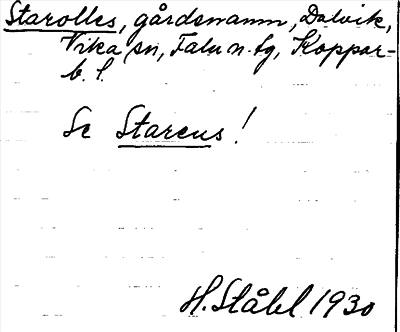 Starolles, gårdsnamn, Dalvik,
Vika sn, Falu n. tg, Koppar-
b. l.
Se Stareus!
H. Ståhl 1930